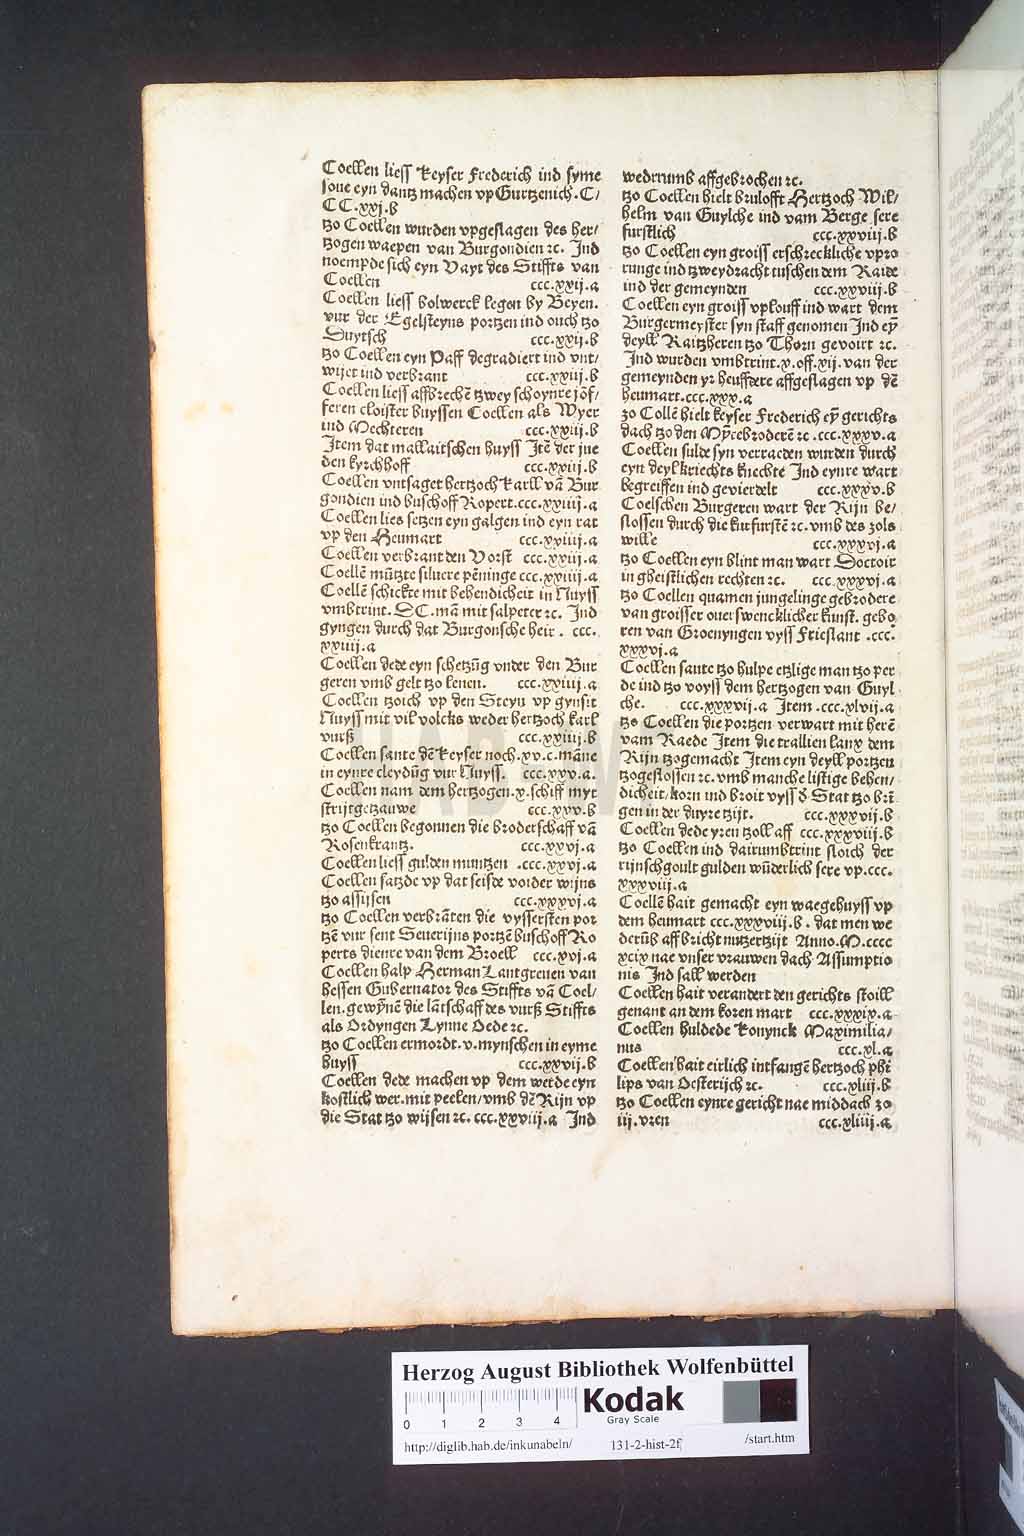 Coellen liess keyser Frederich ind syme
soue eyn dantz machen vp Gurtzenich. C/
CC.xxj.b
tzo Coellen wurden vpgeslagen des her/
tzogen waepen van Burgondien ꝛc. Ind
noempde sich eyn Vayt des Stiffts van
Coellen ccc.xxij.a
Coellen liess bolwerck legen by Beyen.
vur der Egelsteyns portzen ind ouch tzo
Duytsch ccc.xxij.b
tzo Coellen eyn Paff degradiert ind vnt/
wijet ind verbrant ccc.xxiij.b
Coellen liess affbrechē tzwey schoynre jōf/
feren cloister buyssen Coellen als Wyer
ind Mechteren ccc.xxiij.b
Item dat mallaitschen huyss Itē der jue
den kyrchhoff ccc.xxiij.b
Coellen vntsaget hertzoch Karll vā Bur
gondien ind buschoff Ropert.ccc.xxiiij.a
Coellen lies setzen eyn galgen ind eyn rat
vp den Heumart ccc.xxiiij.a
Coellen verbrant den Vorst ccc.xxiij.a
Coellē mūtzte siluere pēninge ccc.xxiiij.a
Coellē schickte mit behendicheit in Nuyss
vmbtrint. DC.mā mit salpeter ꝛc. Ind
gyngen durch dat Burgonsche heir. ccc.
xxiiij.a
Coellen dede eyn schetzūg vnder den Bur
geren vmb gelt tzo lenen. ccc.xxiiij.a
Coellen tzoich vp den Steyn vp gynsit
Nuyss mit vil volcks weder hertzoch karl
vurß ccc.xxiiij.b
Coellen sante dē keyser noch.xv.c.māne
in eynre cleydūg vur Nuyss. ccc.xxv.a.
Coellen nam dem hertzogen.x.schiff myt
strijtgetzauwe ccc.xxv.b
tzo Coellen begonnen die broderschaff vā
Rosenkrantz. ccc.xxvj.a
Coellen liess gulden muntzen .ccc.xxvj.a
Coellen satzde vp dat seisde voider wijns
tzo assijsen ccc.xxxvj.a
tzo Coellen verbrāten die vyssersten por
tzē vur sent Seuerijns portzē buschoff Ro
perts dienre van dem Broell ccc.xvj.a
Coellen halp Herman Lantgreuen van
hessen Gubernator des Stiffts vā Coel/
len.gewȳnē die lātschaff des vurß Stiffts
als Ordyngen Lynne Oede ꝛc.
tzo Coellen ermordt.v.mynschen in eyme
huyss ccc.xxvij.b
Coellen dede machen vp dem werde eyn
kostlich wer.mit peelen/vmb dē Rijn vp
die Stat tzo wijsen ꝛc. ccc.xxviij.a Ind
wedrrumb affgebrochen ꝛc.
tzo Coellen hielt brulofft Hertzoch Wil/
helm van Guylche ind vam Berge sere
furstlich ccc.xxviij.b
tzo Coellen eyn groiss erschreckliche vpro
runge ind tzweydracht tuschen dem Raide
ind der gemeynden ccc.xxviij.b
Coellen eyn groiss vplouff ind wart dem
Burgermeyster syn staff genomen Ind eȳ
deyll Raitzheren tzo Thorn gevoirt ꝛc.
Ind wurden vmbtrint.x.off.xij.van der
gemeynden yr heuffdere affgeslagen vp dē
heumart.ccc.xxx.a
zo Collē hielt keyser Frederich eȳ gerichts
dach tzo den Mȳrebroderē ꝛc .ccc.xxxv.a
Coellen sulde syn verraeden wurden durch
eyn deyl kriechts knechte Ind eynre wart
begreiffen ind gevierdelt ccc.xxxv.b
Coelschen Burgeren wart der Rijn be/
slossen durch die kurfurstē ꝛc.vmb des zols
wille ccc.xxxvj.a
tzo Coellen eyn blint man wart Doctoir
in gheistlichen rechten ꝛc. ccc.xxxvj.a
tzo Coellen quamen jungelinge gebrodere
van groisser ouerswencklicher kunst. gebo
ren van Groenyngen vyss Frieslant .ccc.
xxxvj.a
Coellen sante tzo hulpe etzlige man tzo per
de ind tzo voyss dem hertzogen van Guyl
che. ccc.xxxvij.a Item .ccc.xlvij.a
tzo Coellen die portzen verwart mit herē
vam Raede Item die trallien lanx dem
Rijn tzogemacht Item eyn deyll portzen
tzogeslossen ꝛc.vmb manche listige behen/
dicheit/korn ind broit vyss d̄ Stat tzo brī
gen in der duyre tzijt. ccc.xxxvij.b
Coellen dede yren tzoll aff ccc.xxxviij.b
tzo Coellen ind dairumbtrint sloich der
rijnschgoult gulden wūderlich sere vp.ccc.
xxxviij.a
Coellē hait gemacht eyn waegehuyss vp
dem heumart ccc.xxxviij.b. dat men we
derūb affbricht nutzertzijt Anno.M.cccc
xcix nae vnser vrauwen dach Assumptio
nis Ind sall werden
Coellen hait verandert den gerichts stoill
genant an dem koren mart ccc.xxxix.a
Coellen huldede Konynck Maximilia/
nus ccc.xl.a
Coellen hait eirlich intfangē hertzoch phi
lips van Oesterijch ꝛc. ccc.xliij.b
tzo Coellen eynre gericht nae middach zo
iij.vren ccc.xliiij.a
Herzog August Bibliothek Wolfenbüttel
Kodak
Gray Scale
0 1 2 3 4
http://diglib.hab.de/inkunabeln/ 131-2-hist-2f /start.htm